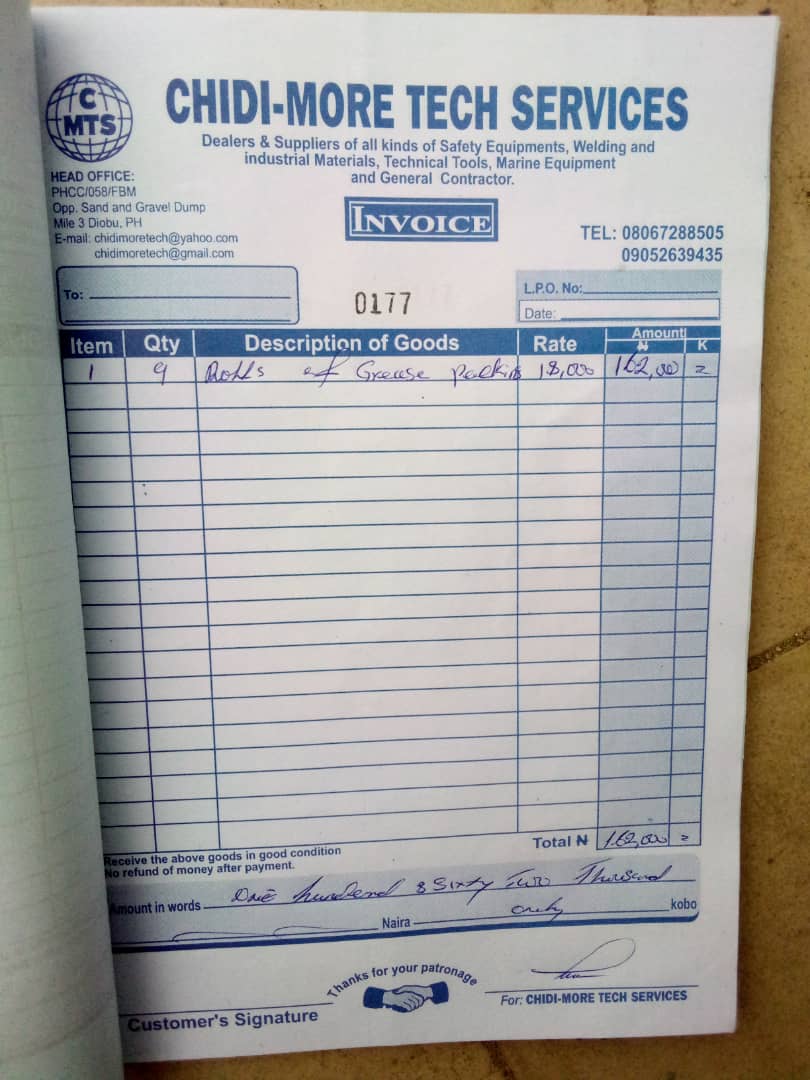 C
MTS
CHIDI-MORE TECH SERVICES
Dealers & Suppliers of all kinds of Safety Equipments, Welding and
industrial Materials, Technical Tools, Marine Equipment
and General Contractor.
HEAD OFFICE:
PHCC/058/FBM
Opp. Sand and Gravel Dump
Mile 3 Diobu, PH
E-mail: chidimoretech@yahoo.com
chidimoretech@gmail.com
INVOICE
TEL: 08067288505
09052639435
To:
0177
L.P.O. No:
Date:
Item Qty Description of Goods Rate Amount
₦ K
1 9 Rolls of Grease packing 18,000 162,000 =
Total ₦ 162,000 =
Receive the above goods in good condition
No refund of money after payment.
Amount in words One hundred & Sixty Two Thousand
Naira only kobo
Thanks for your patronage
Customer's Signature
For: CHIDI-MORE TECH SERVICES